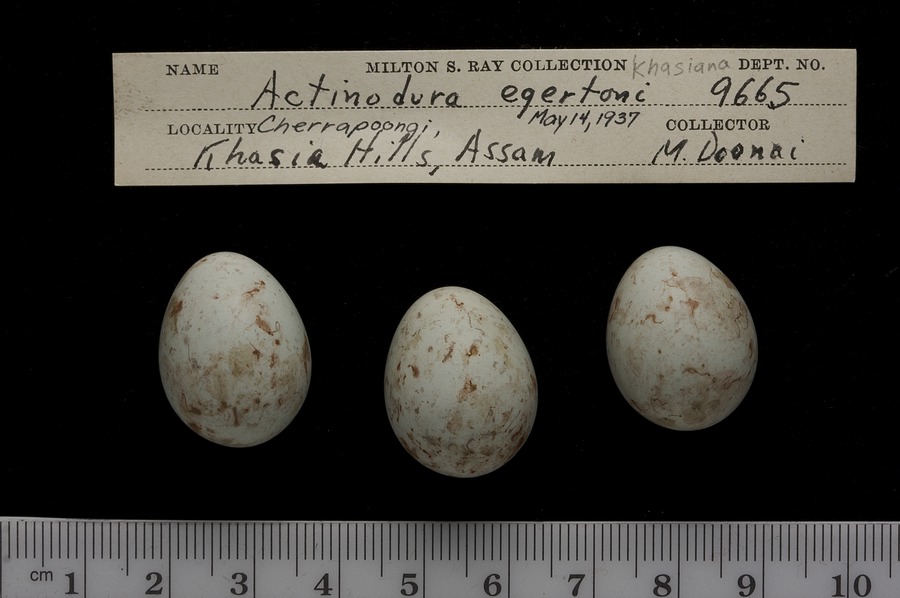 NAME MILTON S. RAY COLLECTION Khasiana DEPT. NO.
Actinodura egertoni 9665
LOCALITY Cherrapoongi, May 14, 1937 COLLECTOR
Khasia Hills, Assam M. Doonai
cm 1 2 3 4 5 6 7 8 9 10